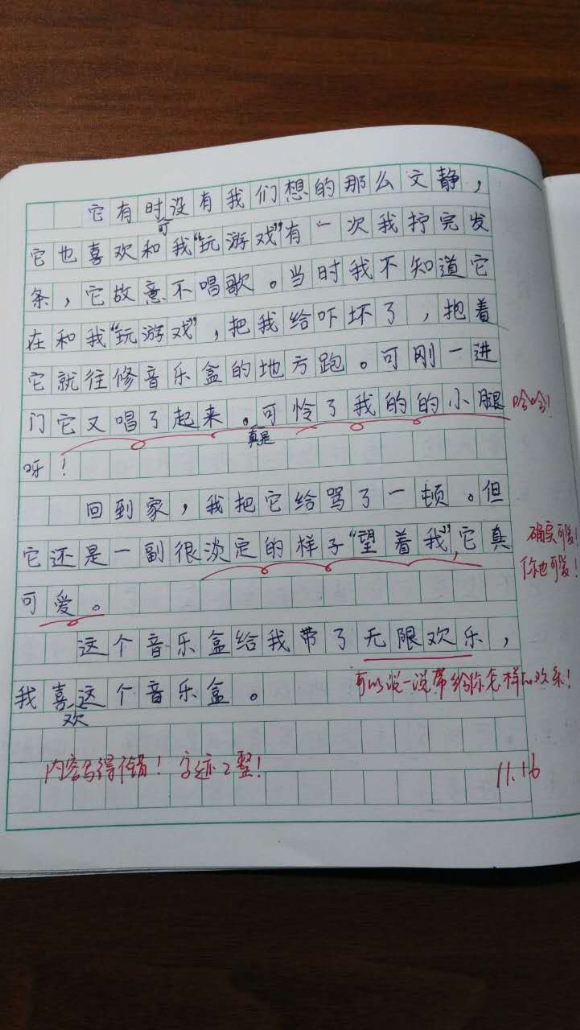 它有时没有我们想的那么文静，
可
它也喜欢和我“玩游戏”有一次我拧完发
条，它故意不唱歌。当时我不知道它
在和我“玩游戏”，把我给吓坏了，抱着
它就往修音乐盒的地方跑。可刚一进
门它又唱了起来。可怜了我的的小腿 哈哈！
真是
呀！
回到家，我把它给骂了一顿。但
它还是一副很淡定的样子“望着我”，它真 确实可爱！
可爱。 你也可爱！
这个音乐盒给我带了无限欢乐，
我喜这个音乐盒。 可以说一说带给你怎样的欢乐！
欢
内容写得不错！字迹工整！ 11.16